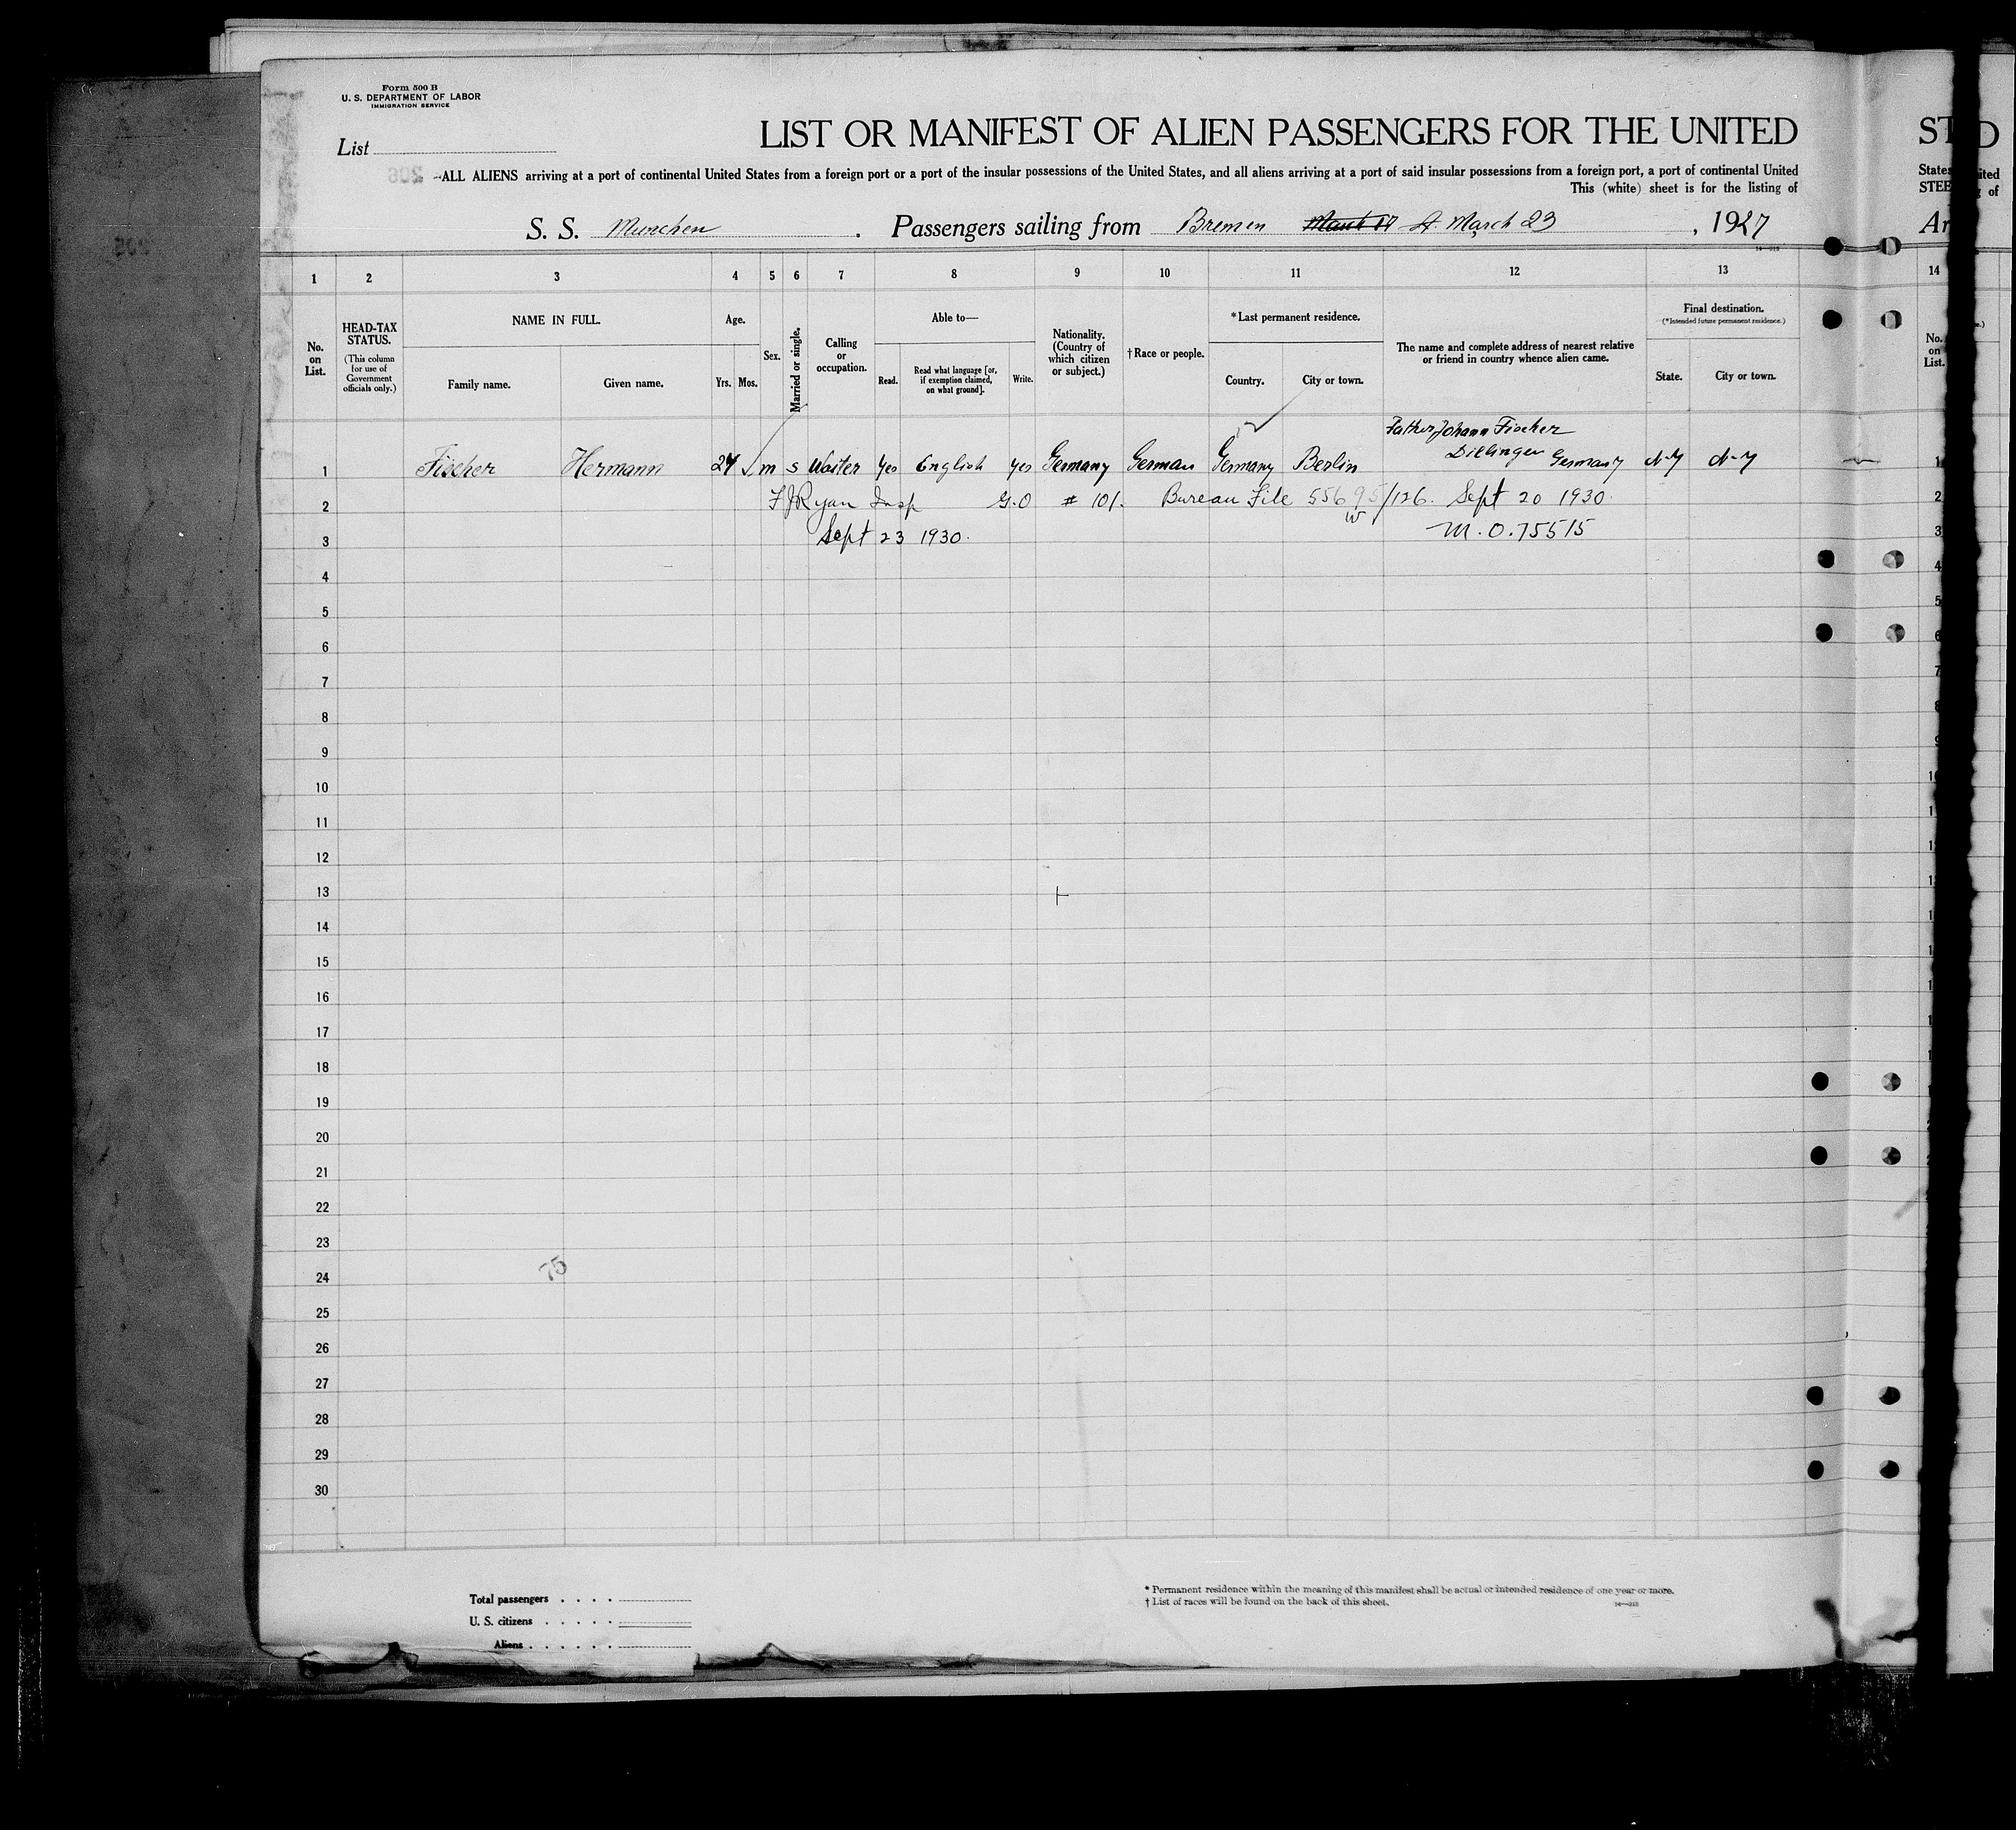 Form 500 B
U. S. DEPARTMENT OF LABOR
IMMIGRATION SERVICE
List
LIST OR MANIFEST OF ALIEN PASSENGERS FOR THE UNITED
ST
D
206
ALL ALIENS arriving at a port of continental United States from a foreign port or a port of the insular possessions of the United States, and all aliens arriving at a port of said insular possessions from a foreign port, a port of continental United
States
ited
This (white) sheet is for the listing of
STEE
g of
S. S. Munchen . Passengers sailing from Bremen March 17 A. March 23 , 1927
Ar
1 2 3 4 5 6 7 8 9 10 11 12 13 14
No. on List.
HEAD-TAX STATUS.
(This column for use of Government officials only.)
NAME IN FULL.
Family name. Given name.
Age.
Yrs. Mos.
Sex.
Married or single.
Calling or occupation.
Able to—
Read. Read what language [or, if exemption claimed, on what ground]. Write.
Nationality. (Country of which citizen or subject.)
† Race or people.
*Last permanent residence.
Country. City or town.
The name and complete address of nearest relative or friend in country whence alien came.
Final destination.
(*Intended future permanent residence.)
State. City or town.
No. on List.
Father Johann Fischer
1 Fischer Hermann 24 m s Waiter Yes English yes Germany German Germany Berlin Dillingen Germany N-Y N-Y
2 F J Ryan Insp G.O # 101. Bureau File 55695/126. Sept 20 1930.
w
3 Sept 23 1930. M.O.75515
4
5
6
7
8
9
10
11
12
13
14
15
16
17
18
19
20
21
22
23
24
75
25
26
27
28
29
30
Total passengers . . . .
U. S. citizens . . . . .
Aliens . . . . . .
* Permanent residence within the meaning of this manifest shall be actual or intended residence of one year or more.
† List of races will be found on the back of this sheet.